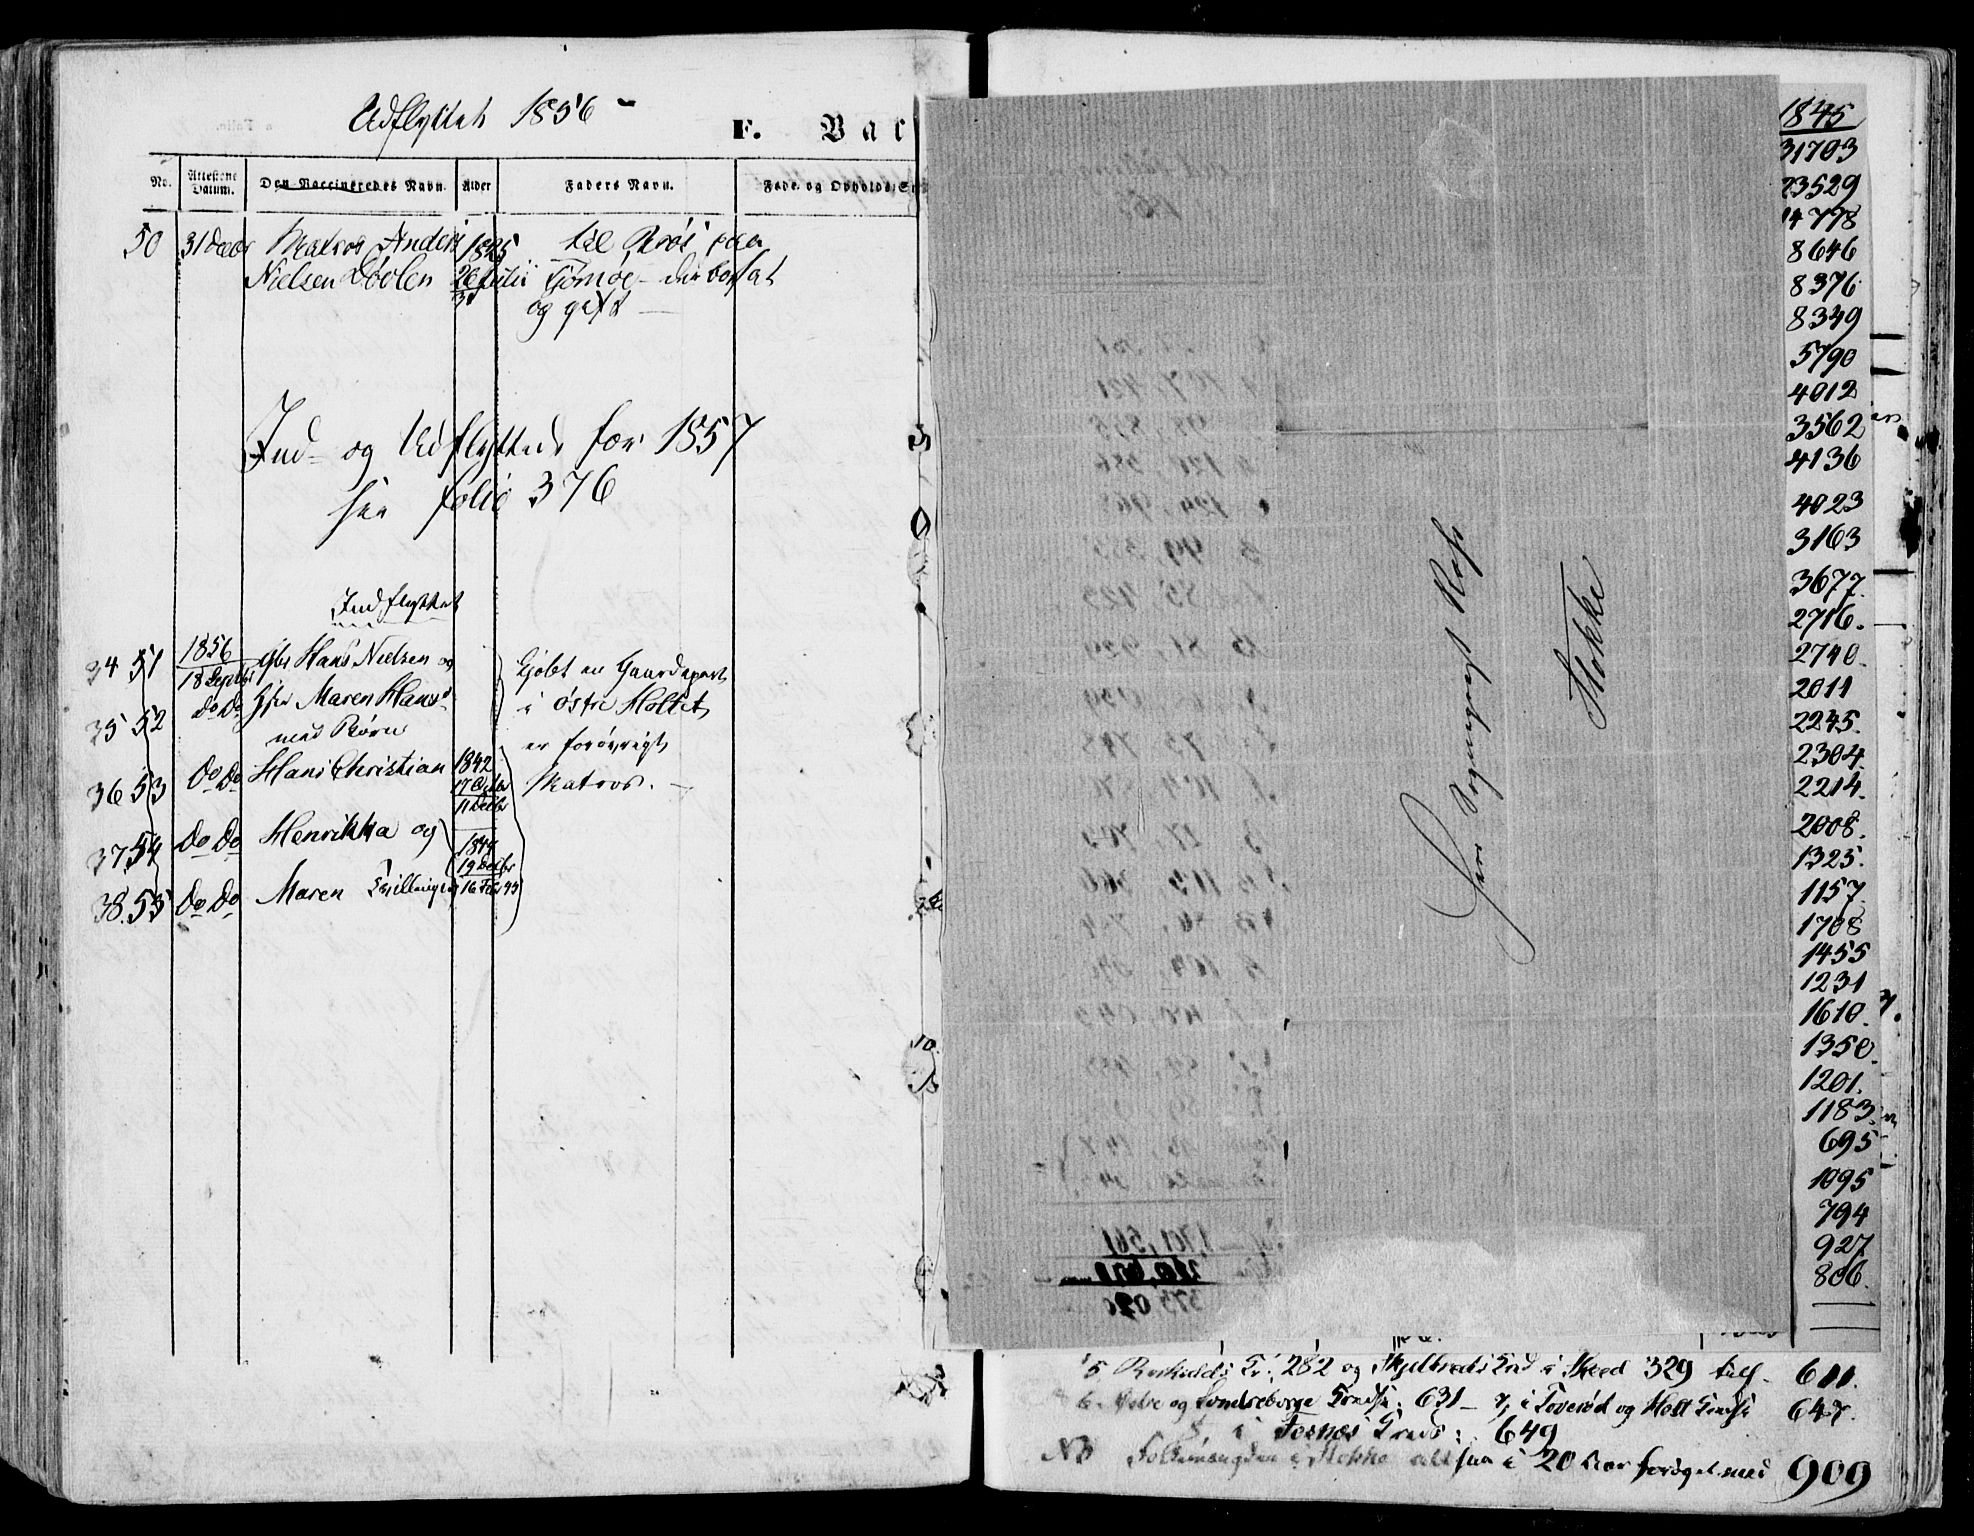 Udflyttet 1856 -
F. Vac
No. Attestens Datum. Den Vaccineredes Navn. Alder Faders Navn. Føde- og Opholds-S
50 31 Decbr Matros Anders 1825 til Røsi paa
Nielsen Døvlen 26 Julii Tjømøe - der bosat
31
og gift -
Ind- og Udflyttede for 1857
see folio 376
Indflyttet
34 51 1856 Hans Nielsen og Kjøbt en Gaardspart
18 Septbr
35 52 Do Do Maren Hansd i østre Holtet
med Børn er forøvrigt
36 53 Do Do Hans Christian 1842 Matros. -
17 Octbr
11 Decbr
37 54 Do Do Henrikka og 1844
19 Decbr
38. 55 Do Do Maren Tvillinger 16 Febr 45
Herr Sogneprest
Stokke
1845
31703
23529
14778
8646
8376
8349
5790
4012
3562
4136
4023
3163
3677.
2716.
2740.
2011
2245.
2304.
2214.
2008.
1325.
1157.
1708
1455
1231
1610.
1350.
1201.
1183.
695
1095
794
927
806.
5 282 og i Skeed 329 tils. 611.
6. og Sondreborge 631 - 7, i Toverød og Holt 647.
8, i Fosnæs 649
NB Folkemængden i Stokke altsaa i 20 Aar forøget med 909